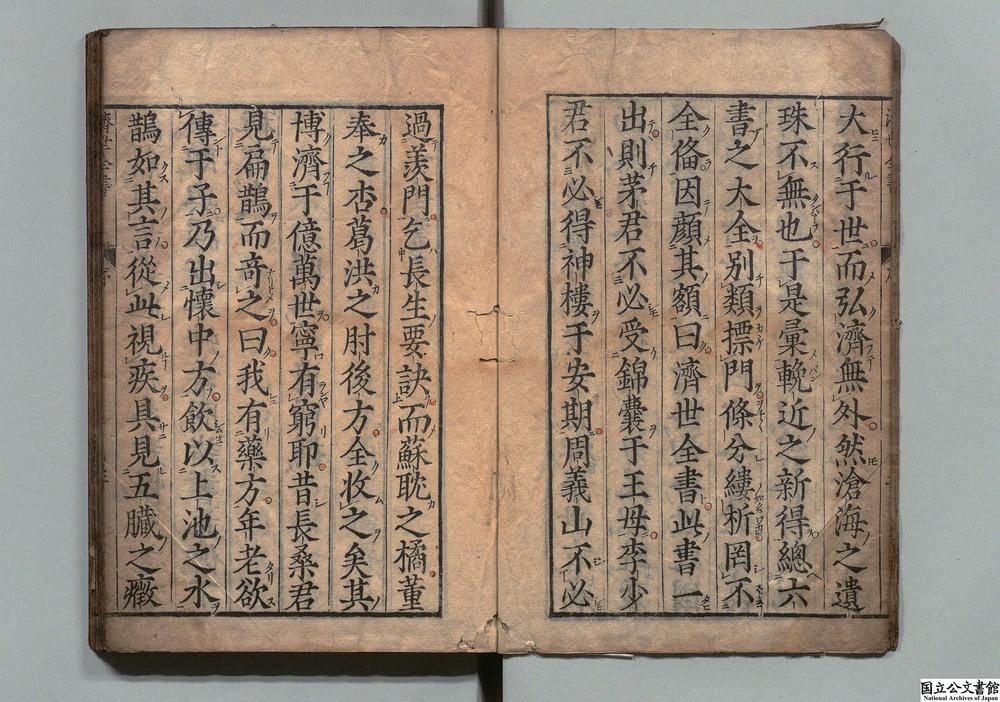 大行于世而弘濟無外然滄海之遺
珠不無也于是彚輓近之新得總六
書之大全別類摽門條分縷析罔不
全俻因顏其額曰濟世全書此書一
出則茅君不必受錦囊于王母李少
君不必得神樓于安期周義山不必
過羨門乞長生要訣而蘇耽之橘董
奉之杏葛洪之肘後方全收之矣其
博濟于億萬世寧有窮耶昔長桑君
見扁鵲而奇之曰我有藥方年老欲
傳于子乃出懷中方飲以上池之水
鵲如其言從此視疾具見五臟之癥
濟世全書
序
国立公文書館
National Archives of Japan